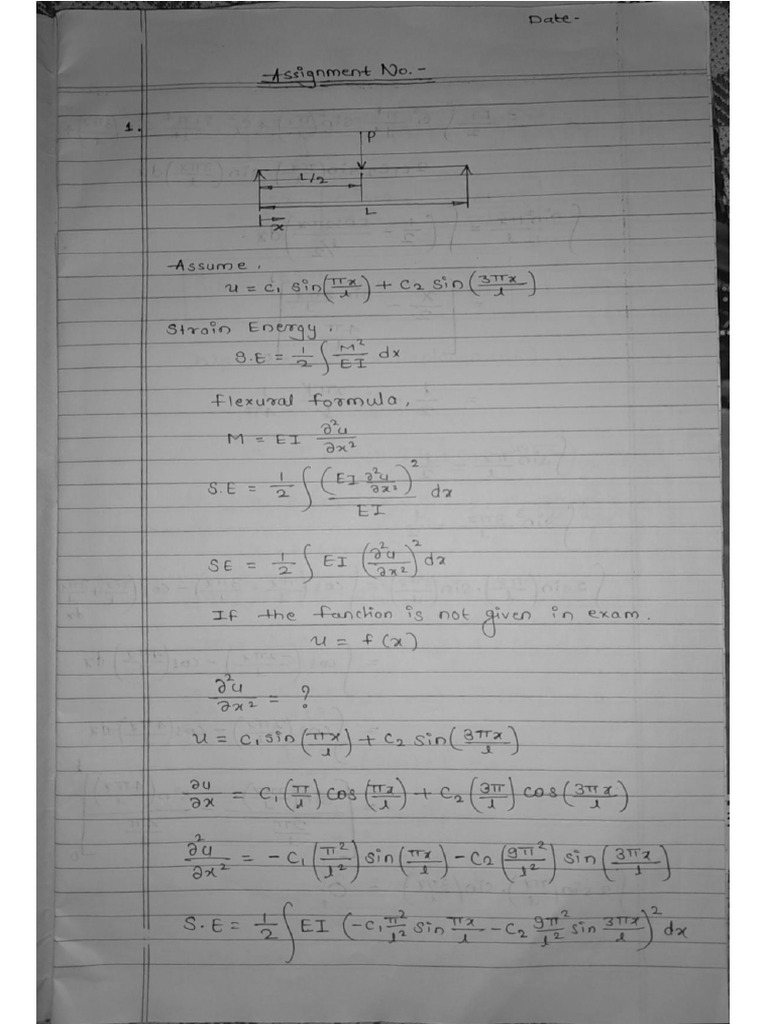 Date-
Assignment No.-
1.
P
L/2
L
x
Assume,
u = c₁ sin(πx/l) + c₂ sin(3πx/l)
Strain Energy,
S.E = 1/2 ∫ M²/EI dx
Flexural formula,
M = EI ∂²u/∂x²
S.E = 1/2 ∫ (EI ∂²u/∂x²)²/EI dx
SE = 1/2 ∫ EI (∂²u/∂x²)² dx
If the fanction is not given in exam.
u = f(x)
∂²u/∂x² = ?
u = c₁ sin(πx/l) + c₂ sin(3πx/l)
∂u/∂x = c₁(π/l) cos(πx/l) + c₂(3π/l) cos(3πx/l)
∂²u/∂x² = -c₁(π²/l²) sin(πx/l) - c₂(9π²/l²) sin(3πx/l)
S.E = 1/2 ∫ EI (-c₁ π²/l² sin πx/l - c₂ 9π²/l² sin 3πx/l)² dx